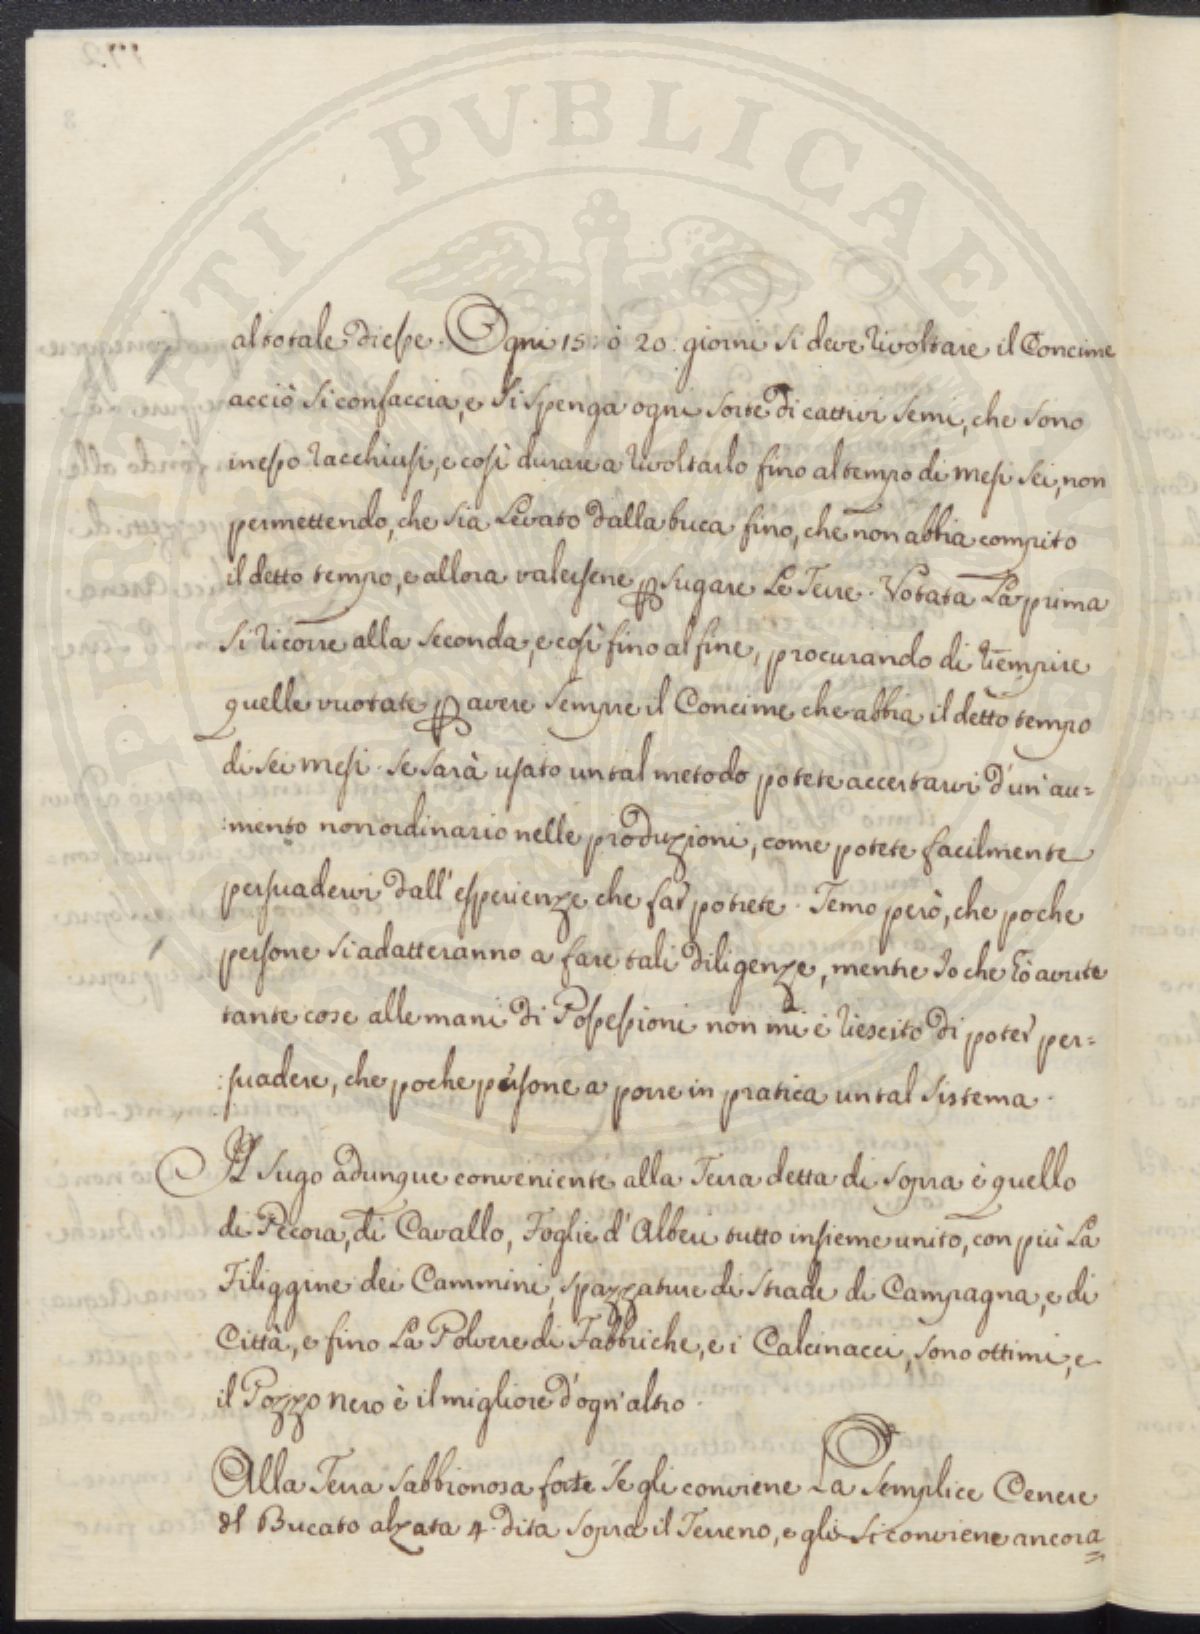 PROSPERITATI PUBLICAE
al totale di esse. Ogni 15: ò 20: giorni si deve rivoltare il Concime
acciò si confaccia, e si spenga ogni sorte di cattivi semi, che sono
in esso racchiusi, e così durare a rivoltarlo fino al tempo di mesi sei, non
permettendo, che sia Levato dalla buca fino, che non abbia compito
il detto tempo, e allora valersene p sugare Le Terre. Votata La prima
si ricorre alla seconda, e così fino al fine, procurando di riempire
quelle vuotate p avere sempre il Concime che abbia il detto tempo
di sei mesi. Se sarà usato un tal metodo potete accertarvi d'un'au=
:mento non ordinario nelle produzioni, come potete facilmente
persuadervi dall'esperienze che far potrete. Temo però, che poche
persone si adatteranno a fare tali diligenze, mentre Io che hò avute
tante cose alle mani di Possessioni non mi è riescito di poter per=
:suadere, che poche persone a porre in pratica un tal sistema.
Il Sugo adunque conveniente alla Terra detta di sopra è quello
di Pecora, di Cavallo, Foglie d'Alberi tutto insieme unito, con più La
Filiggine dei Cammini, spazzature di strade di Campagna, e di
Città, e fino La Polvere di Fabbriche, e i Calcinacci, sono ottimi, e
il Pozzo nero è il migliore d'ogn'altro.
Alla Terra sabbionosa forte se gli conviene La semplice Cenere
di Bucato alzata 4. dita sopra il Terreno, e gli si conviene ancora